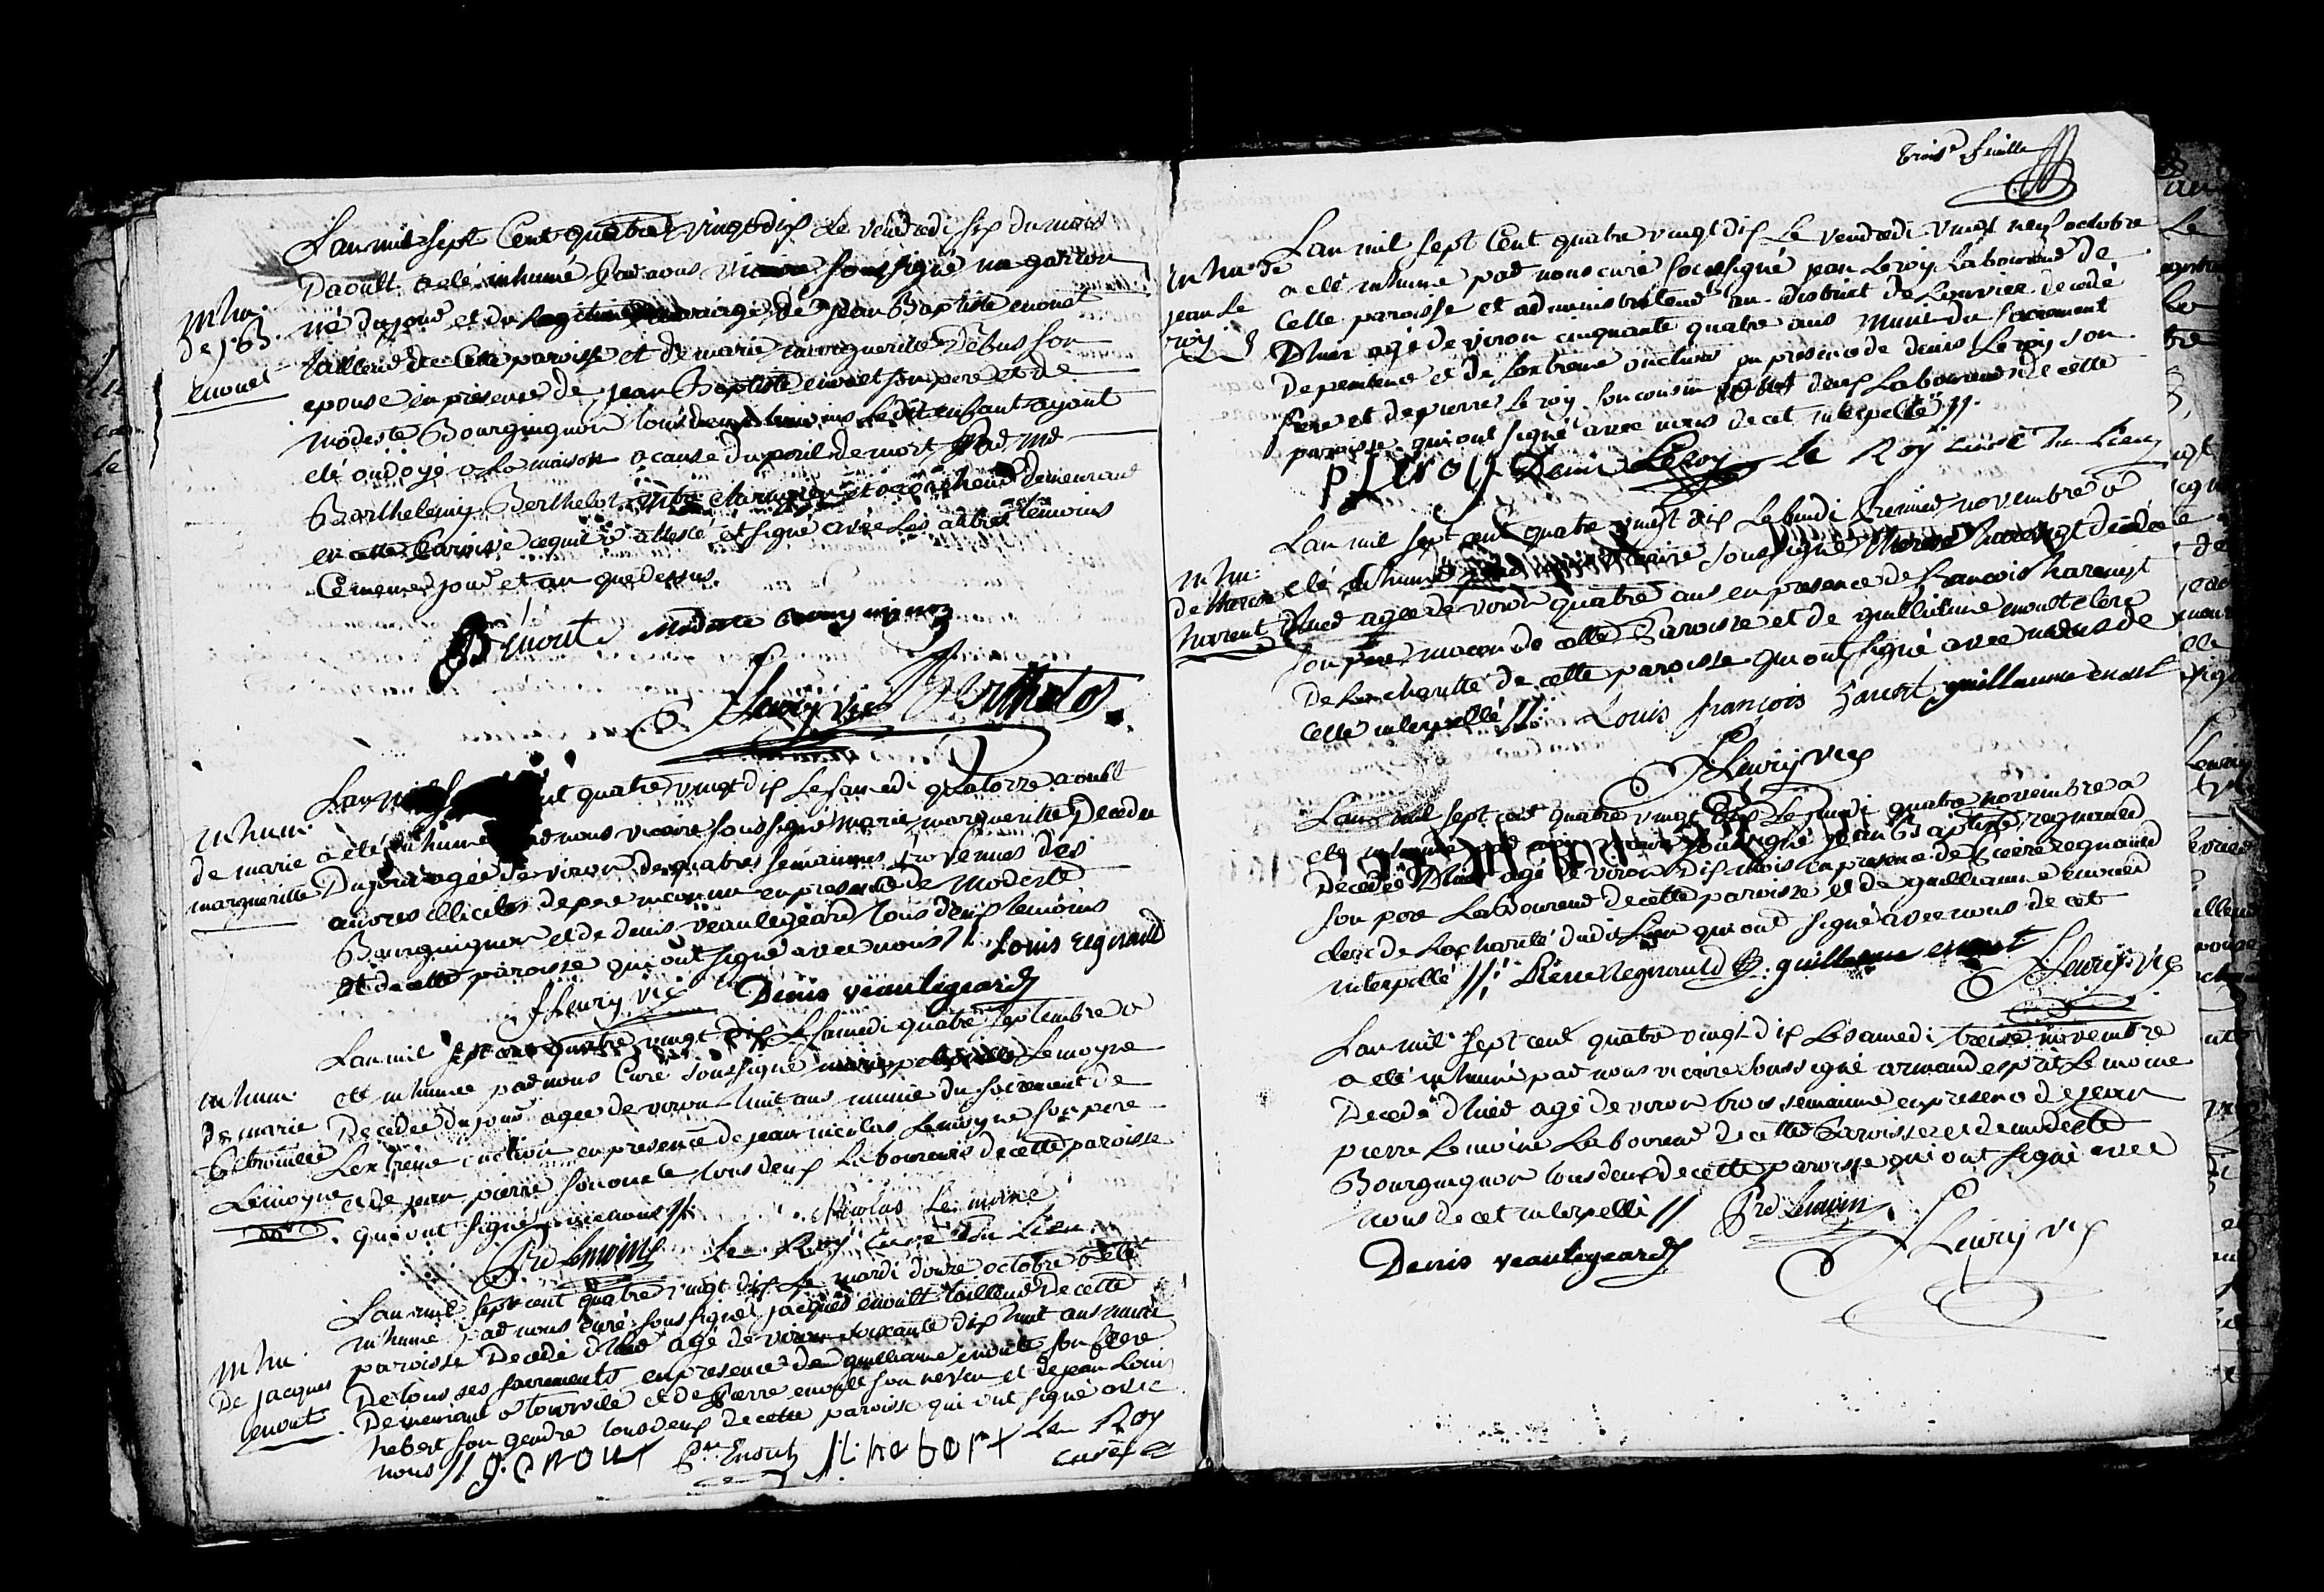 Lan mil sept Cent quatre vingt dix Le vendredi six du mois
Daoust a eté inhumé par nous vicaire soussigné un garcon
né du jour et du legitime mariage de jean Baptiste enoult
tailleur de Cette paroisse et de marie marguerite Debus son
epouse en presence de jean Baptiste enoult son pere et de
modeste Bourguignon tous deux temoins Ledit enfant ayant
eté ondoyé a La maison a cause du peril de mort par me
Barthelemy Berthelot chirurgien et accoucheur demeurant
en cette Paroisse cequil a attesté et signé avec Les autres temoins
Ce meme jour et an que dessus
inhu.
de j. B.
enoult
B enoult modeste Bourguignon
fleury vic Berthelot
Lan mil quatre vingt dix Le samedi quatorze aoust
a eté inhumé par nous vicaire soussigné marie marguerite Decedee
Du jour agée de viron de quatres semaines provenues des
œuvres illicites de pere inconnu en presence de Modeste
Bourguignon et de denis veaulegeard tous deux temoins
et de cette paroisse qui ont signé avec nous //. Louis regnauld
inhum.
de marie
marguerite
fleury vic Denis veaulegeard
Lan mil sept cent quatre vingt dix Le samedi quatre septembre a
eté inhumée par nous Curé soussigné marie Lemoyne
Decedée du jour agee de viron huit ans munie du sacrement de
Lextreme onction en presence de jean nicolas Lemoyne son pere
et de jean pierre son oncle tous deux Laboureurs de cette paroisse
qui ont signé avec nous //. Nicolas Le moine
inhum.
De marie
Lemoyne
Pre Lemoine Le Roy Curé Du Lieu
Lan mil sept cent quatre vingt dix Le mardi douze octobre a eté
inhumé par nous curé soussigné jacques enoult tailleur de cette
paroisse Decedé dhier agé de viron soixante dix huit ans muni
De tous ses sacrements en presence de guilliaume enoult son frere
Demeurant a tourville et de Pierre enoult son neveu et de jean Louis
hebert son gendre tous deux de cette paroisse qui ont signé avec
nous //. g. enout Pre Enoult jl hebert Le Roy
curé
inhu.
De jacques
enoult
Trois.e feuille
Lan mil sept Cent quatre vingt dix Le vendredi vingt neuf octobre
a eté inhumé par nous curé soussigné jean Leroy Laboureur de
Cette paroisse et administrateur au district de Louviers decedé
Dhier agé de viron cinquante quatre ans muni du sacrement
De penitence et de Lextreme onction en presence de denis Le roy son
frere et de pierre Le roy son cousin deux Laboureurs de cette
paroisse qui ont signé avec nous de cet interpellé //.
inhu. de
jean Le
roy
P Leroy Denis LeRoy Le Roy curé Du Lieu
Lan mil sept cent quatre vingt dix Le lundi Premier novembre a
eté inhumé vicaire soussigné decedee
dhier agee de viron quatre ans en presence de francois harent
son pere macon de cette Paroisse et de guilliaume enoult clerc
De La charité de cette paroisse qui ont signé avec nous de
Cette interpellé //. Louis françois harent guillaume enoult
inhu.
harent
fleury vic
Lan mil sept cent quatre vingt dix Le jeudi quatre novembre a
eté inhumé par nous vicaire soussigné jean Baptiste regnauld
Decedée Dhier agé de viron dix mois en presence de Pierre regnauld
son pere Laboureur de cette paroisse et de guilliaume enoult
clerc de La charité dudit Lieu qui ont signé avec nous de cet
interpellé //: Pierre Regnauld guillaume enout
fleury vic
Lan mil sept cent quatre vingt dix Le samedi treize novembre
a eté inhumé par nous vicaire soussigné armand esprit Le moine
Decedé dhier agé de viron trois semaine en presence de jean
pierre Lemoine Laboureur de cette Paroisse et de modeste
Bourguignon tous deux de cette paroisse qui ont signé avec
nous de cet interpellé // Pre Lemoin
Denis veaulegeard fleury vic